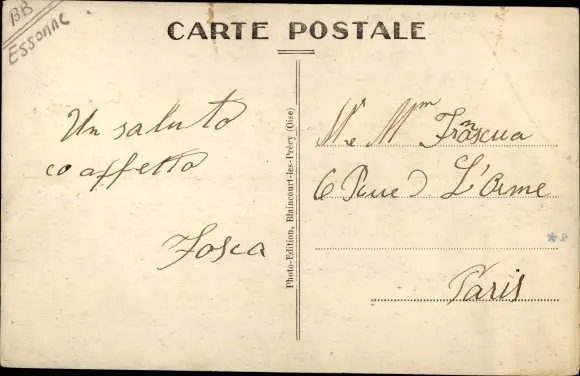 BB
Essonne
CARTE POSTALE
Un saluto
co affetto
Tosca
Photo-Edition, Blaincourt-les-Précy (Oise)
Mr e Mme Frascua
6 Rue L'Orme
Paris